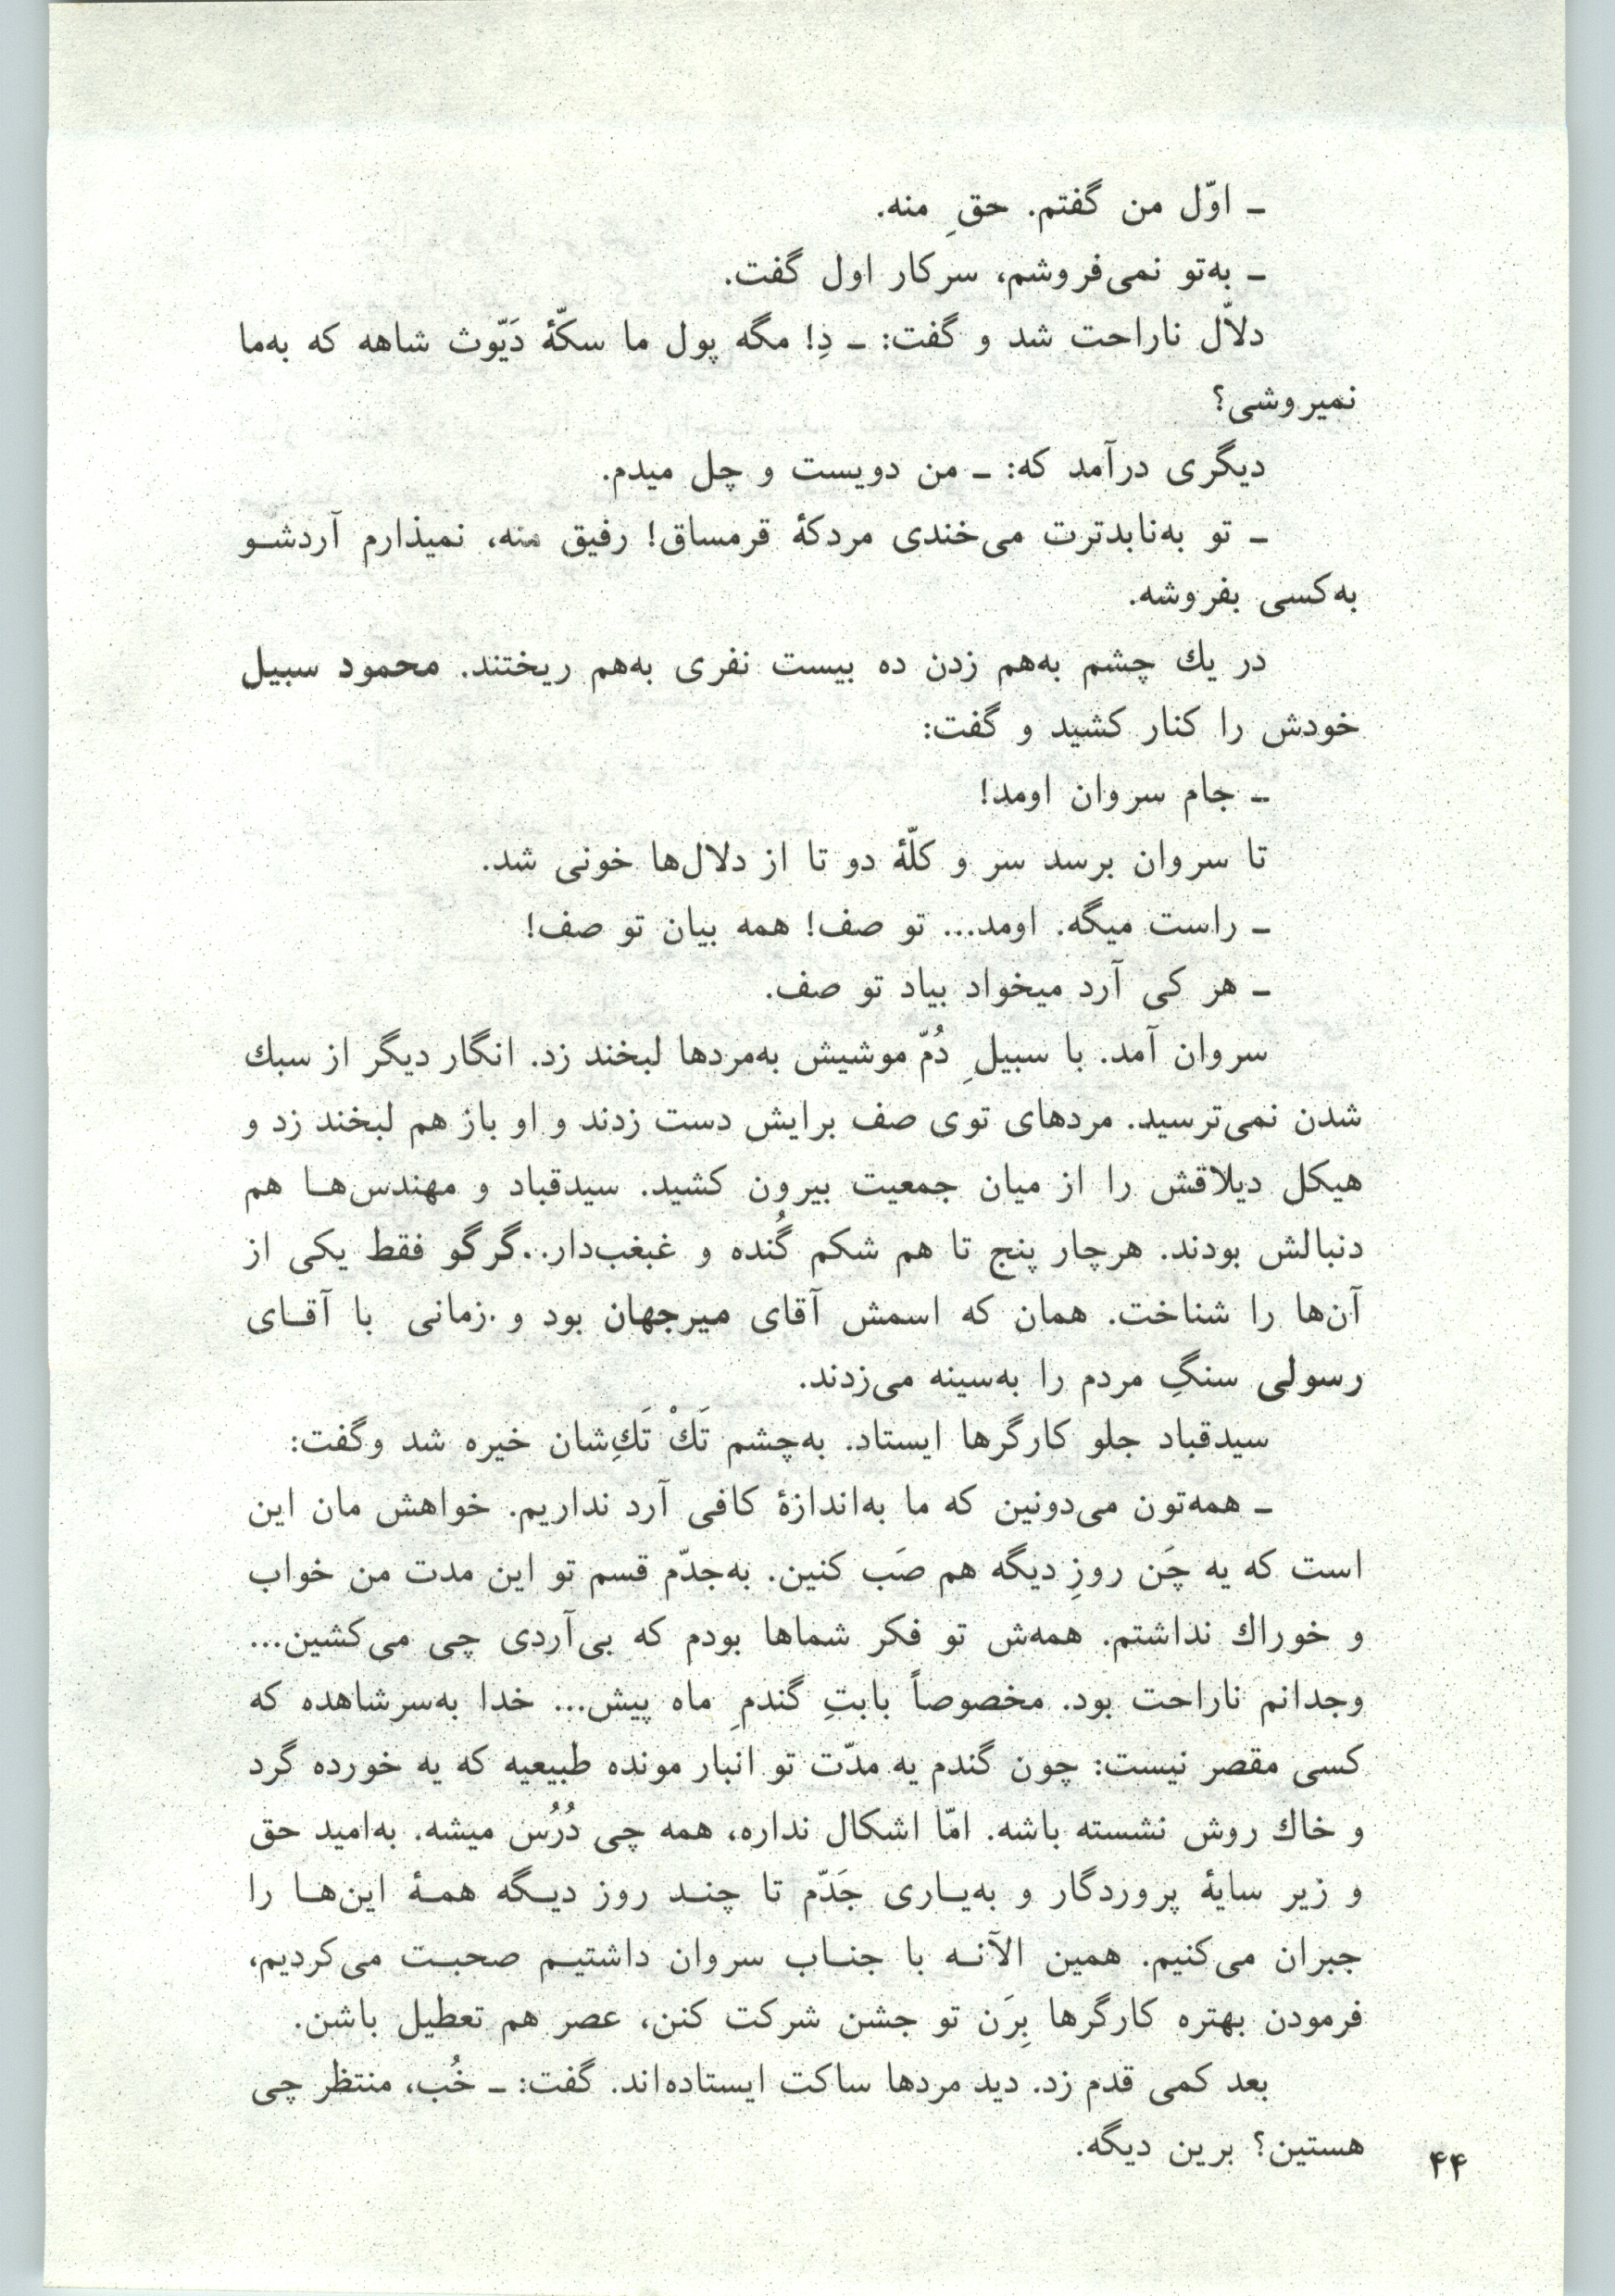 ـ اوّل من گفتم. حقِ منه.
ـ به‌تو نمی‌فروشم، سرکار اول گفت.
دلاّل ناراحت شد و گفت: ـ دِ! مگه پول ما سکّهٔ دَیّوث شاهه که به‌ما
نمیروشی؟
دیگری درآمد که: ـ من دویست و چل میدم.
ـ تو به‌نابدترت می‌خندی مردکهٔ قرمساق! رفیق منه، نمیذارم آردشـو
به‌کسی بفروشه.
در یك چشم به‌هم زدن ده بیست نفری به‌هم ریختند. محمود سبیل
خودش را کنار کشید و گفت:
ـ جام سروان اومد!
تا سروان برسد سر و کلّهٔ دو تا از دلال‌ها خونی شد.
ـ راست میگه. اومد... تو صف! همه بیان تو صف!
ـ هر کی آرد میخواد بیاد تو صف.
سروان آمد. با سبیلِ دُمّ موشیش به‌مردها لبخند زد. انگار دیگر از سبك
شدن نمی‌ترسید. مردهای توی صف برایش دست زدند و او باز هم لبخند زد و
هیکل دیلاقش را از میان جمعیت بیرون کشید. سیدقباد و مهندس‌هـا هم
دنبالش بودند. هرچار پنج تا هم شکم گُنده و غبغب‌دار..گرگو فقط یکی از
آن‌ها را شناخت. همان که اسمش آقای میرجهان بود و زمانی با آقـای
رسولی سنگِ مردم را به‌سینه می‌زدند.
سیدقباد جلو کارگرها ایستاد. به‌چشم تَكْ تَكِ‌شان خیره شد وگفت:
ـ همه‌تون می‌دونین که ما به‌اندازهٔ کافی آرد نداریم. خواهش مان این
است که یه چَن روزِ دیگه هم صَب کنین. به‌جدّم قسم تو این مدت من خواب
و خوراك نداشتم. همه‌ش تو فکر شماها بودم که بی‌آردی چی می‌کشین...
وجدانم ناراحت بود. مخصوصاً بابتِ گندمِ ماه پیش... خدا به‌سرشاهده که
کسی مقصر نیست: چون گندم یه مدّت تو انبار مونده طبیعیه که یه خورده گرد
و خاك روش نشسته باشه. امّا اشکال نداره، همه چی دُرُس میشه. به‌امید حق
و زیر سایهٔ پروردگار و به‌یـاری جَدّم تا چنـد روز دیـگه همـهٔ این‌هـا را
جبران می‌کنیم. همین الآنـه با جنـاب سروان داشتیـم صحبـت می‌کردیم،
فرمودن بهتره کارگرها بِرَن تو جشن شرکت کنن، عصر هم تعطیل باشن.
بعد کمی قدم زد. دید مردها ساکت ایستاده‌اند. گفت: ـ خُب، منتظر چی
هستین؟ برین دیگه.
۴۴